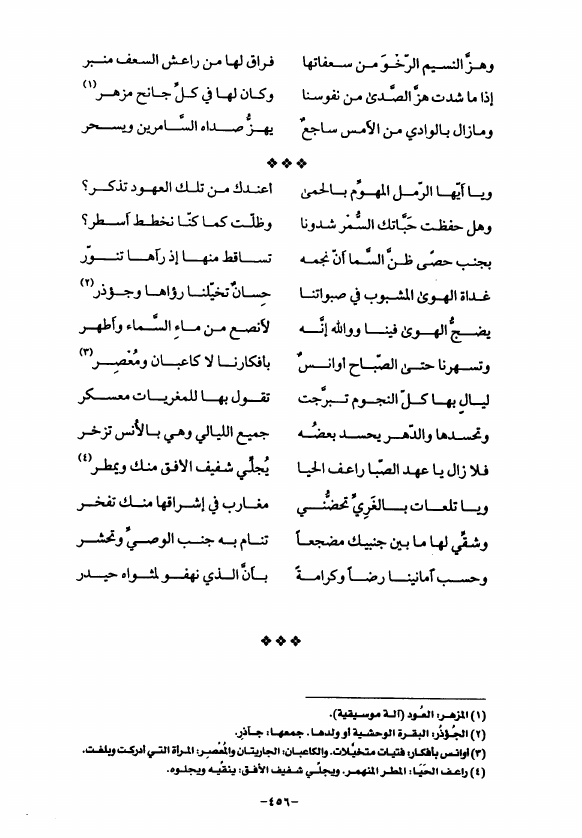 وهزَّ النسيم الرّخْوَ من سعفاتها فراق لها من راعش السعف منبر
إذا ما شدت هزَّ الصَّدىٰ من نفوسنا وكان لها في كلِّ جانح مزهر(١)
ومازال بالوادي من الأمس ساجعٌ يهزُّ صداه السَّامرين ويسحر
❖❖❖
ويا أيّها الرّمل المهوِّم بالحمىٰ اعندك من تلك العهود تذكر؟
وهل حفظت حبَّاتك السُّمْر شدونا وظلّت كما كنّا نخطط أسطر؟
بجنب حصّى ظنَّ السَّما أنّ نجمه تساقط منها إذ رآها تنوّر
غداة الهوىٰ المشبوب في صبواتنا حِسانٌ تخيّلنا رؤاها وجؤذر(٢)
يضجُّ الهوىٰ فينا ووالله إنَّه لأنصع من ماءِ السَّماء وأطهر
وتسهرنا حتىٰ الصّباح أوانسٌ بافكارنا لا كاعبان ومُعْصِر(٣)
ليالٍ بها كلّ النجوم تبرَّجت تقول بها للمغريات معسكر
وتحسدها والدّهر يحسد بعضُه جميع الليالي وهي بالأنس تزخر
فلا زال يا عهد الصّبا راعف الحيا يُجلِّي شفيف الافق منك ويمطر(٤)
ويا تلعات بالغَريِّ تحضنُّي مغارب في إشراقها منك تفخر
وشقِّي لها ما بين جنبيك مضجعاً تنام به جنب الوصيِّ وتحشر
وحسب آمانينا رضاً وكرامةً بأنَّ الذي نهفو لمثواه حيدر
❖❖❖
(١) المزهر: العود (آلة موسيقية).
(٢) الجؤذر: البقرة الوحشية أو ولدها. جمعها: جآذر.
(٣) أوانس بأفكار: فتيات متخيَّلات. والكاعبان: الجاريتان والمُعْصِر: المرأة التي أدركت وبلغت.
(٤) راعف الحَيَا: المطر المنهمر. ويجلّي شفيف الأفق: ينقّيه ويجلوه.
-٤٥٦-